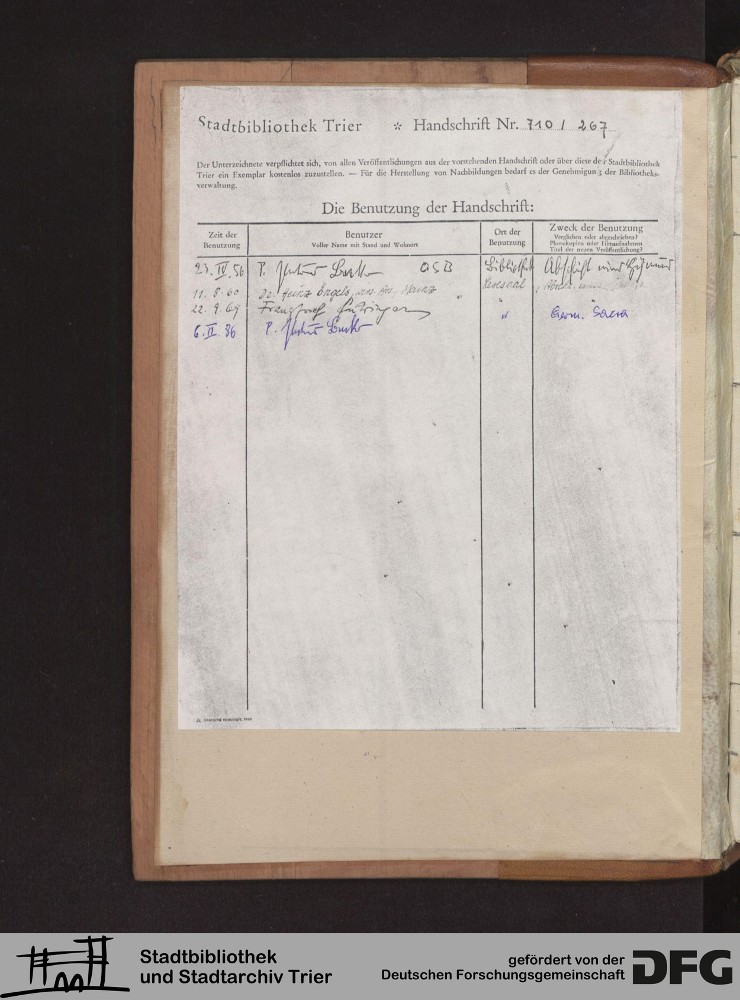 Stadtbibliothek Trier * Handschrift Nr. 710 / 267
Der Unterzeichnete verpflichtet sich, von allen Veröffentlichungen aus der vorstehenden Handschrift oder über diese der Stadtbibliothek
Trier ein Exemplar kostenlos zuzustellen. — Für die Herstellung von Nachbildungen bedarf es der Genehmigung der Bibliotheks-
verwaltung.
Die Benutzung der Handschrift:
Zeit der
Benutzung
Benutzer
Voller Name mit Stand und Wohnort
Ort der
Benutzung
Zweck der Benutzung
Verglichen oder abgeschrieben?
Photokopien oder Filmaufnahmen
Titel der neuen Veröffentlichung?
23. IV. 56 P. OSB Bibliothek Abschrift
11. 8. 60 Dr. Heinz Engels, Mainz Lesesaal
22. 9. 69 Franz Josef " Germ. Sacra
6. II. 86 P.
Stadtbibliothek
und Stadtarchiv Trier
gefördert von der
Deutschen Forschungsgemeinschaft
DFG